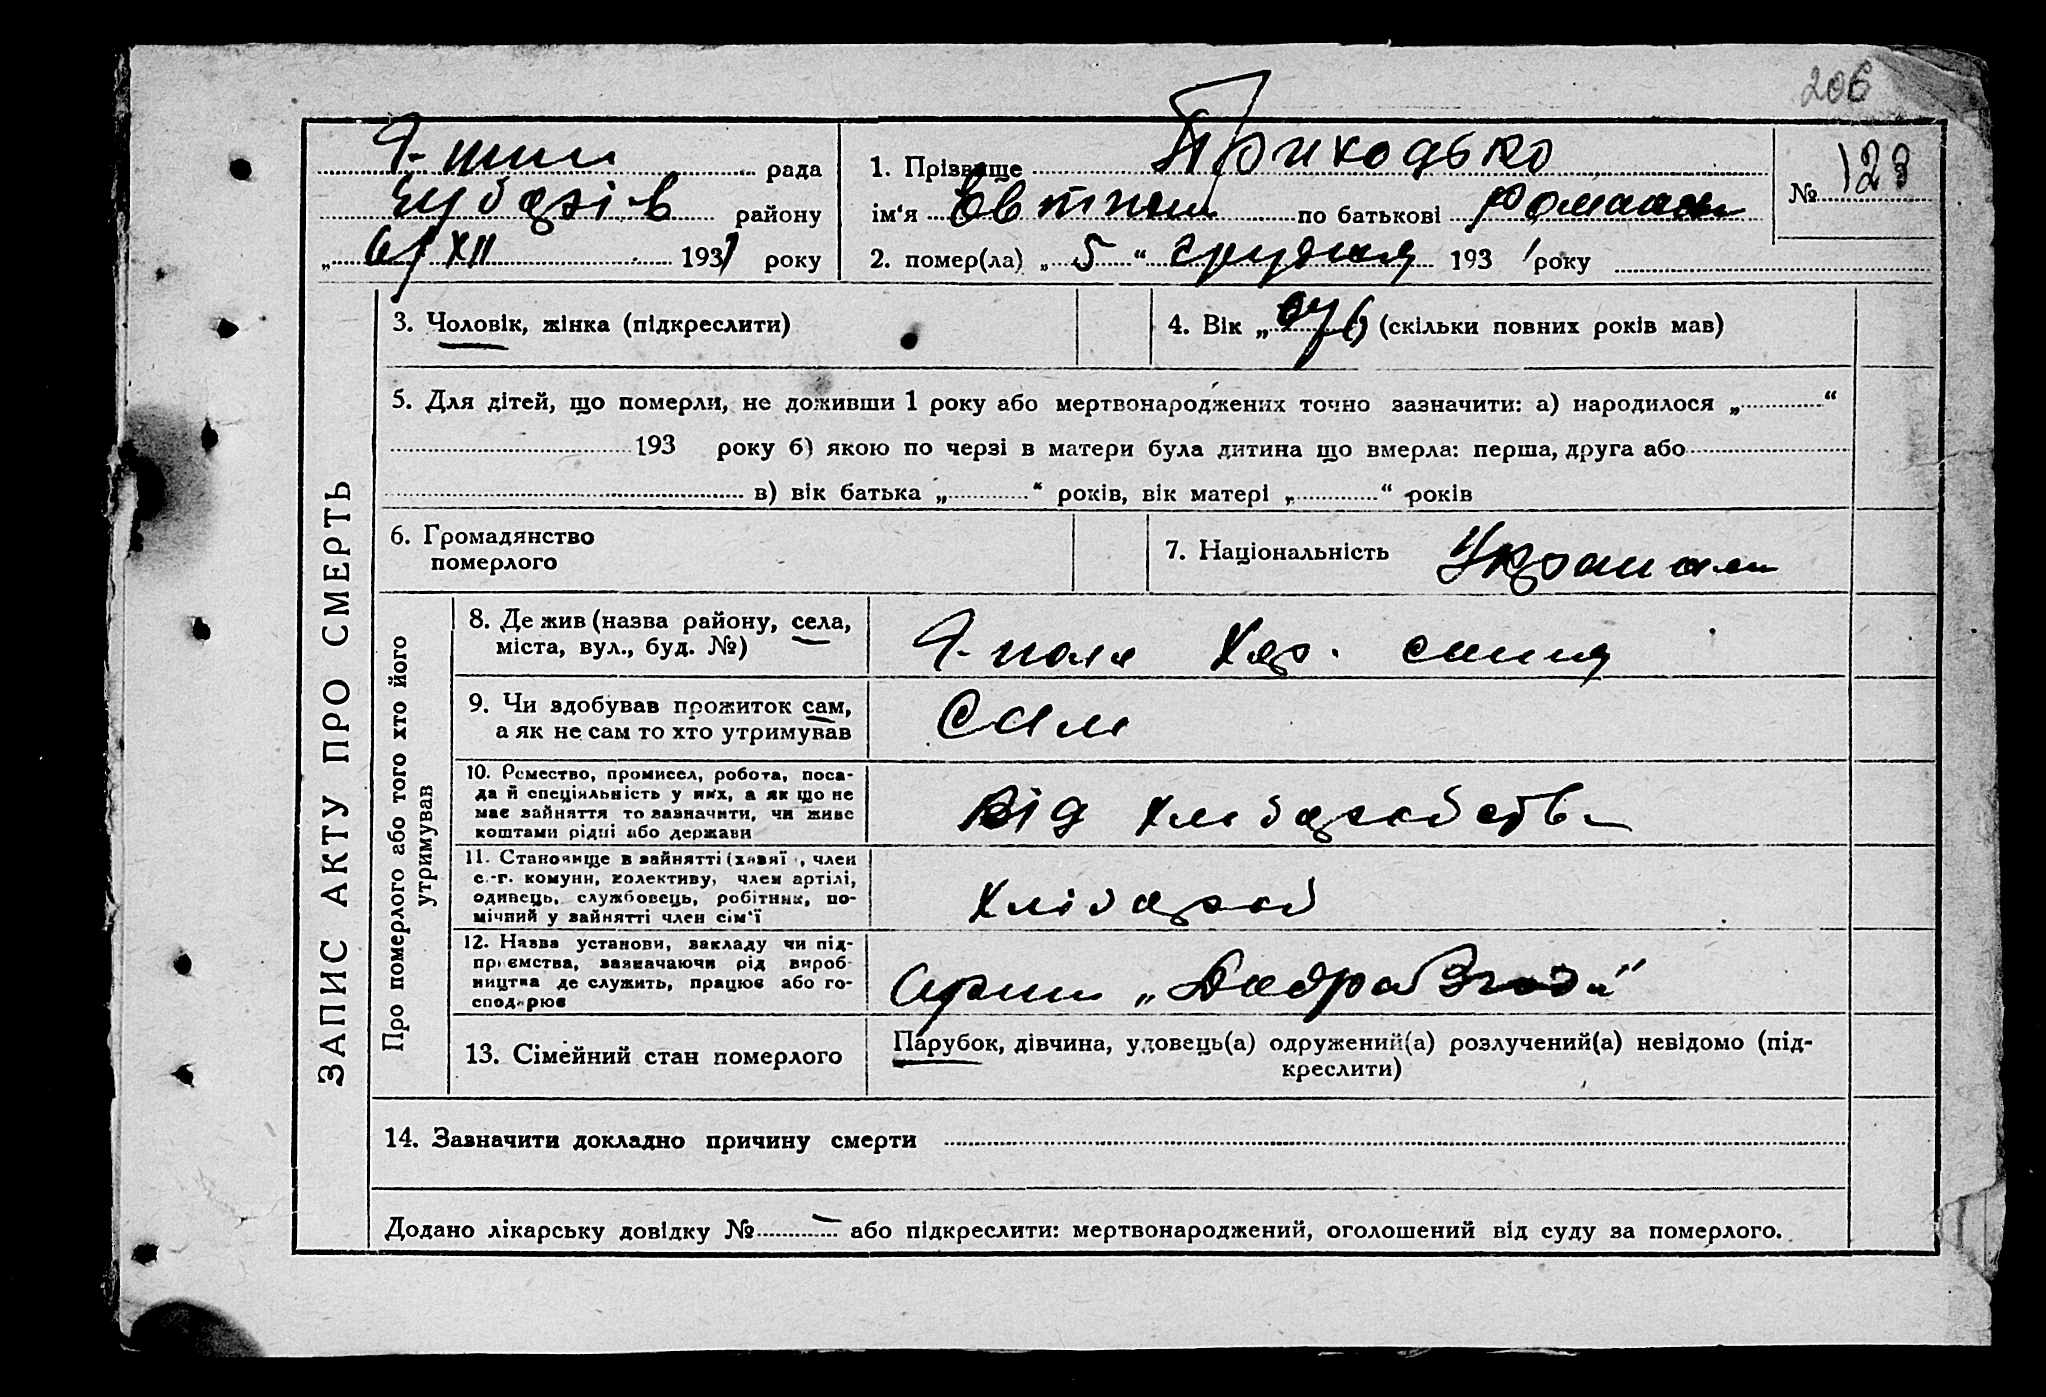 206
рада
району
„ 6/XII 1931 року
1. Прізвище Приходько
ім'я по батькові Роман
№ 123
2. помер(ла) „ 5 “ грудня 193 1 року
ЗАПИС АКТУ ПРО СМЕРТЬ
3. Чоловік, жінка (підкреслити)
4. Вік „ “ (скільки повних років мав)
5. Для дітей, що померли, не доживши 1 року або мертвонароджених точно зазначити: а) народилося „ “
193 року б) якою по черзі в матери була дитина що вмерла: перша, друга або
в) вік батька „ “ років, вік матері „ “ років
6. Громадянство
померлого
7. Національність
Про померлого або того хто його
утримував
8. Де жив (назва району, села,
міста, вул., буд. №)
9. Чи здобував прожиток сам,
а як не сам то хто утримував
Сам
10. Ремество, промисел, робота, поса-
да й спеціяльність у них, а як що не
має зайняття то зазначити, чи живе
коштами рідні або держави
від
11. Становище в зайнятті (хазяї , член
с.-г. комуни, колективу, член артілі,
одинець, службовець, робітник, по-
мічний у зайнятті член сім'ї
Хлібороб
12. Назва установи, закладу чи під-
приємства, зазначаючи рід вироб-
ництва де служить, працює або го-
сподарює
13. Сімейний стан померлого
Парубок, дівчина, удовець(а) одружений(а) розлучений(а) невідомо (під-
креслити)
14. Зазначити докладно причину смерти
Додано лікарську довідку № — або підкреслити: мертвонароджений, оголошений від суду за померлого.